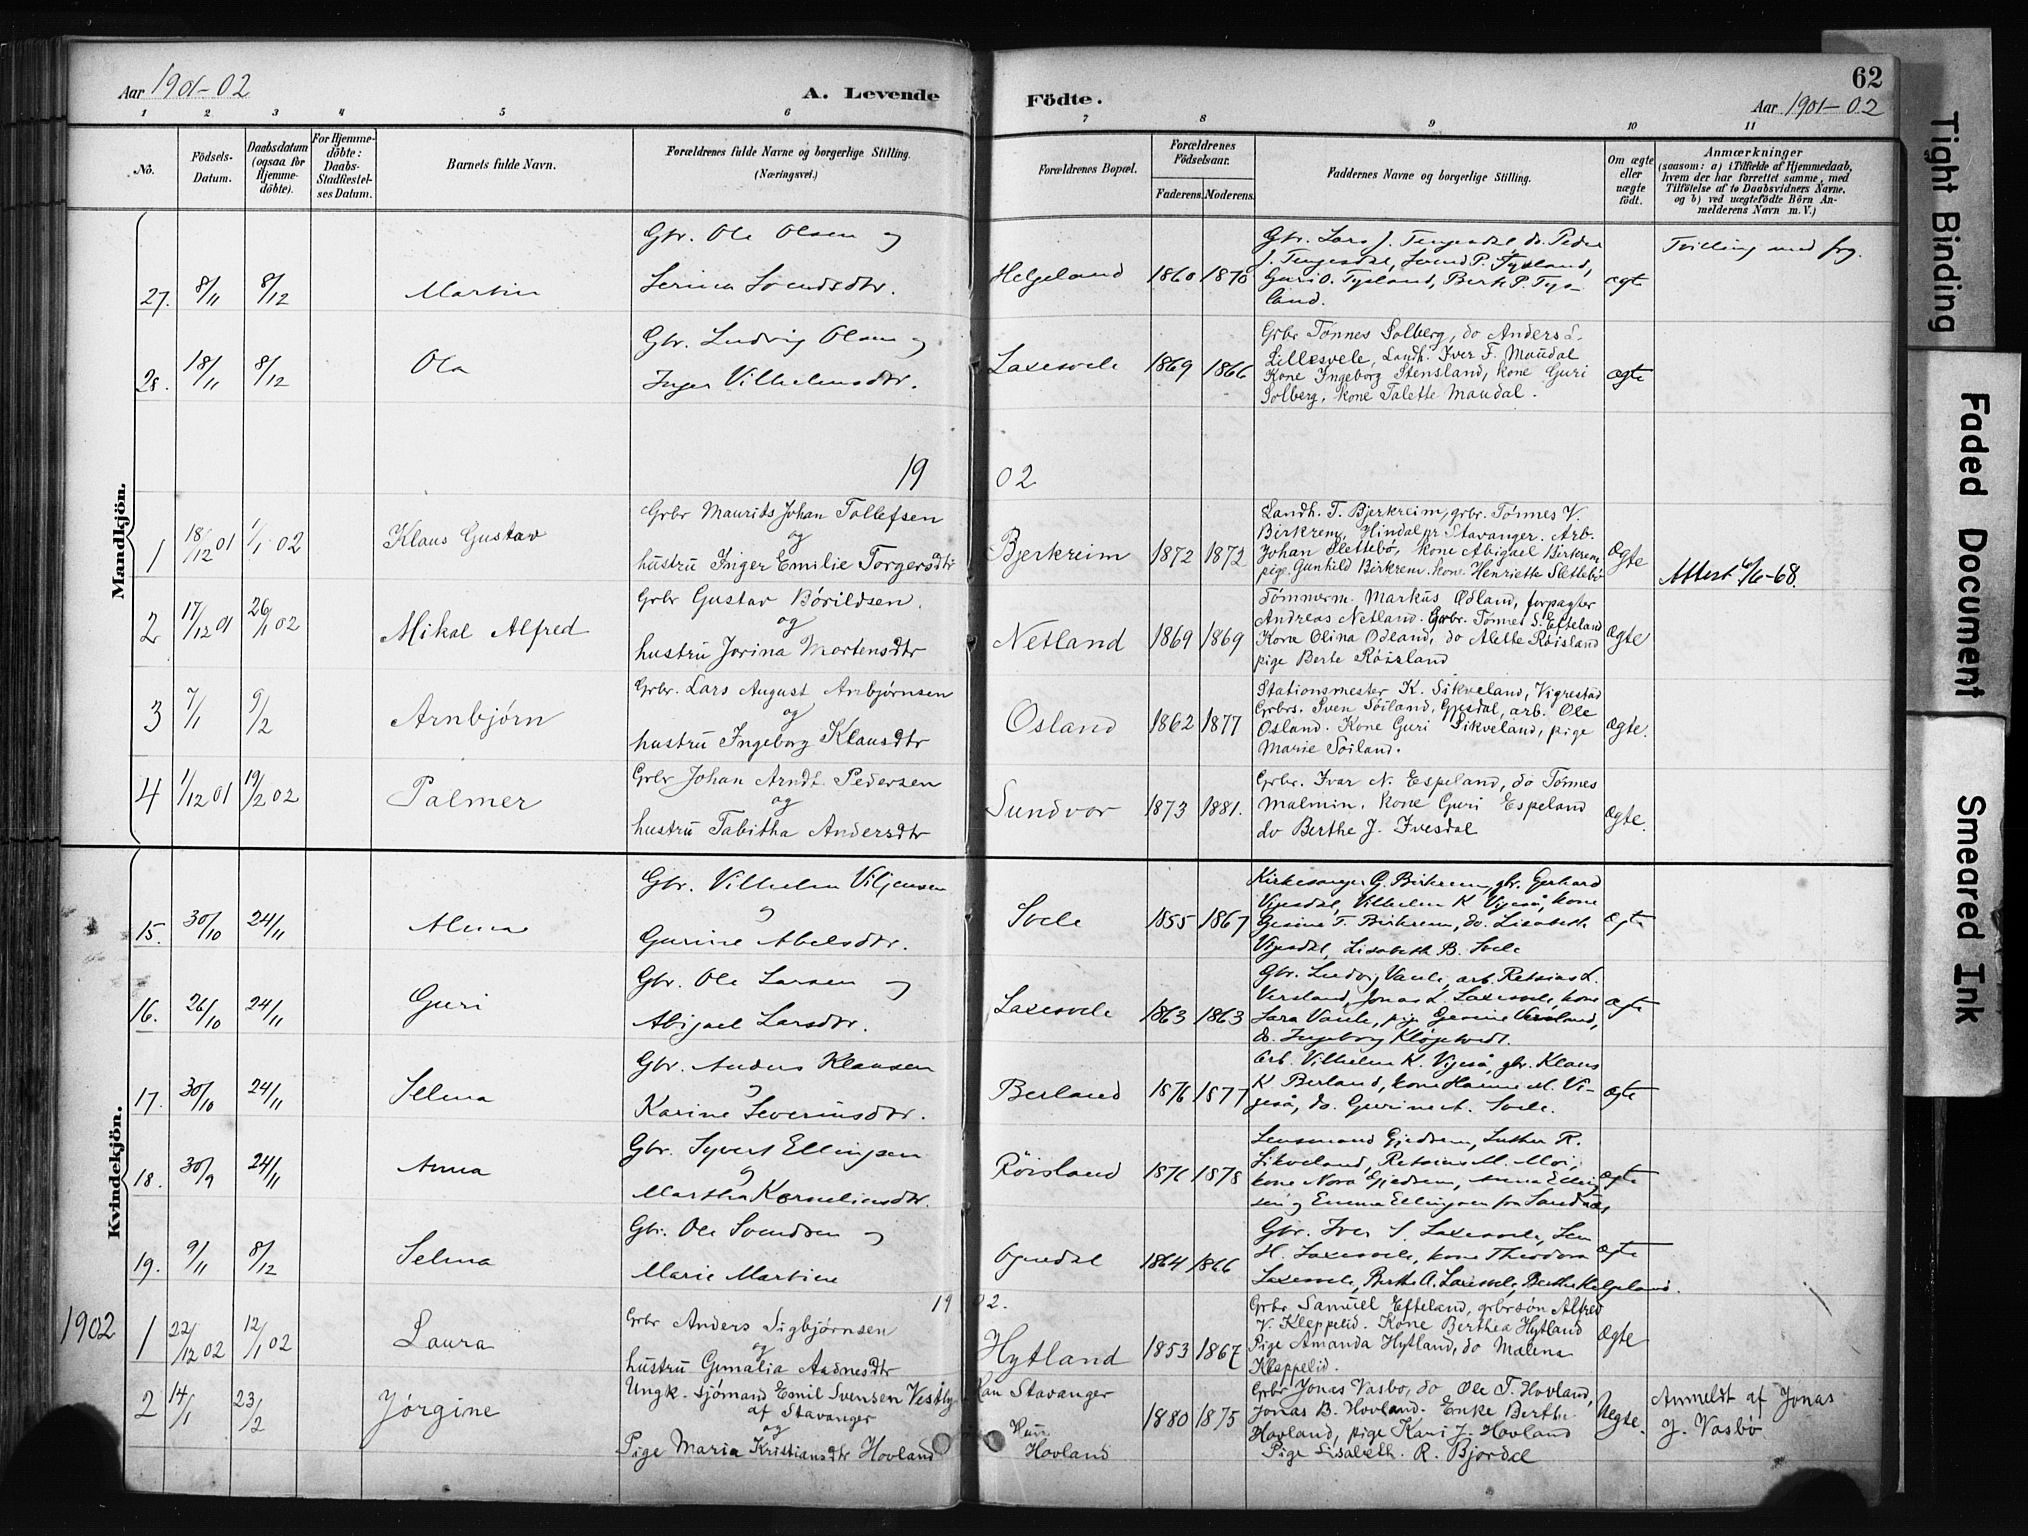 Aar 1901-02
A. Levende
Fødte.
62
Aar 1901-02
1 2 3 4 5 6 7 8 9 10 11
No.
Fødsels-Datum.
Daabsdatum (ogsaa for Hjemmedøbte).
For Hjemmedøbte: Daabs-Stadfestelses Datum.
Barnets fulde Navn.
Forældrenes fulde Navne og borgerlige Stilling. (Næringsvei.)
Forældrenes Bopæl.
Forældrenes Fødselsaar.
Faderens. Moderens.
Faddernes Navne og borgerlige Stilling.
Om ægte eller uægte født.
Anmærkninger
(saasom: a) i Tilfælde af Hjemmedaab, hvem der har forrettet samme, med Tilføielse af to Daabsvidners Navne, og b) ved uægtefødte Børn Anmelderens Navn m. V.)
Mandkjön.
27. 8/11 8/12 Martin
Gbr. Ole Olsen og
Serina Svendsdtr.
Helgeland 1860 1870
Gbr. Lars J. Tengesdal, do. Peder
J. Tengesdal, Svend P. Tysland,
Guri O. Tysland, Berte P. Tys-
land.
ægte
Tvilling med frg.
28. 18/11 8/12 Ola
Gbr. Ludvig Olsen og
Inger Vilhelmsdtr.
Laxesvele 1869 1866
Grbr Tønnes Solberg, do Anders S.
Lillesvele, Landh. Iver F. Maudal
Kone Ingeborg Stensland, kone Guri
Solberg, kone Talette Maudal.
ægte
1902
1 18/12 01 1/1 02 Klaus Gustav
Grbr Maurids Johan Tollefsen
og
hustru Inger Emilie Torgersdtr
Bjerkreim 1872 1872
Landh. T. Bjerkreim, grbr. Tønnes V.
Birkrem, Hindal pr Stavanger. Arb.
Johan Slettebø, kone Abigael Birkrem
pige Gunhild Birkrem. kone Henriette Slettebø
Ægte
Attest 6/6-68.
2 17/12 01 26/1 02 Mikal Alfred
Grbr Gustav Børildsen.
og
hustru Jorina Mortensdtr
Netland 1869 1869
Tømmerm. Markus Ødland, forpagter
Andreas Netland. Grbr. Tønnes S. Efteland
Kone Olina Ødland, do Alette Røisland
pige Berte Røisland
Ægte
3 7/1 9/2 Arnbjørn
Grbr. Lars August Arnbjørnsen
og
hustru Ingeborg Klausdtr
Osland 1862 1877
Stationsmester K. Sikveland, Vigrestad
Grbrs. Sven Søiland, Gjesdal, arb. Ole
Osland. Kone Guri Sikveland, pige
Marie Søiland.
Ægte.
4 1/12 01 19/2 02 Palmer
Grbr Johan Arndt Pedersen
og
hustru Tabitha Andersdtr
Sundvor 1873 1881.
Grbr. Ivar N. Espeland, do Tønnes
Malmin. kone Guri Espeland
do Berthe J. Ivesdal
Ægte.
Kvindekjön.
15. 30/10 24/11 Alma
Gbr. Vilhelm Viljensen
og
Gurine Abelsdtr.
Svele 1855 1867
Kirkesanger G. Birkrem, gbr. Gerhard
Vigesdal, Vilhelm K Vigeså, kone
Gesine T. Birkrem, do. Lisabeth
Vigesdal, Lisabeth B. Svele
ægte
16. 26/10 24/11 Guri
Gbr. Ole Larsen og
Abigael Larsdtr.
Laxesvele 1863 1863
Gbr. Ludvig Vaule, arb. Retsius L.
Versland, Jonas L. Laxesvele, kone
Sara Vaule, pige Gesine Versland,
do. Ingeborg
ægte
17. 30/10 24/11 Selma
Gbr. Anders Klausen
og
Karine Severinsdtr.
Berland 1876 1877
Arb. Vilhelm K. Vigeså, gbr. Klaus
K Berland, kone Hanne M. Vi-
geså, do. Gurine A. Svele.
ægte
18. 30/9 24/11 Anna
Gbr. Syvert Ellingsen
og
Martha Korneliusdtr.
Røisland 1876 1878
Lensmand Gjedrem, Luther R.
Sikveland, Retsius M. Moi,
kone Nora Gjedrem, Anna Elling
sen og Emma Ellingsen fra Sandnæs
ægte
19. 9/11 8/12 Selma
Gbr. Ole Svendsen og
Marie Martine
Ognedal 1864 1866
Gbr. Iver S. Laxesvele, Sem
H. Laxesvele, kone Theodora
Laxesvele, Berthe A. Laxesvele, Berthe Helgeland.
ægte
1902
1902.
1 22/12 02 12/1 02 Laura
Grbr Anders Sigbjørnsen
og
hustru Gumalia Aadnesdtr
Hytland 1853 1867
Grbr Samuel Efteland, grbrsøn Alfred
V. Kleppelid. Kone Berthea Hytland
Pige Amanda Hytland, do Malena
Kleppelid.
Ægte
2 14/1 23/2 Jørgine
Ungk. sjømand Emil Svensen Vestly
af Stavanger
og
Pige Maria Kristiansdtr Hovland
Han Stavanger
Hun
Hovland
1880 1875
Grbr Jonas Vasbø, do Ole T. Hovland,
Jonas B. Hovland. Enke Berthe
Hovland, pige Kari J. Hovland
Pige Lisabeth R. Bjordal
Uegte.
Anmeldt af Jonas
J. Vasbø
Tight Binding
Faded Document
Smeared Ink